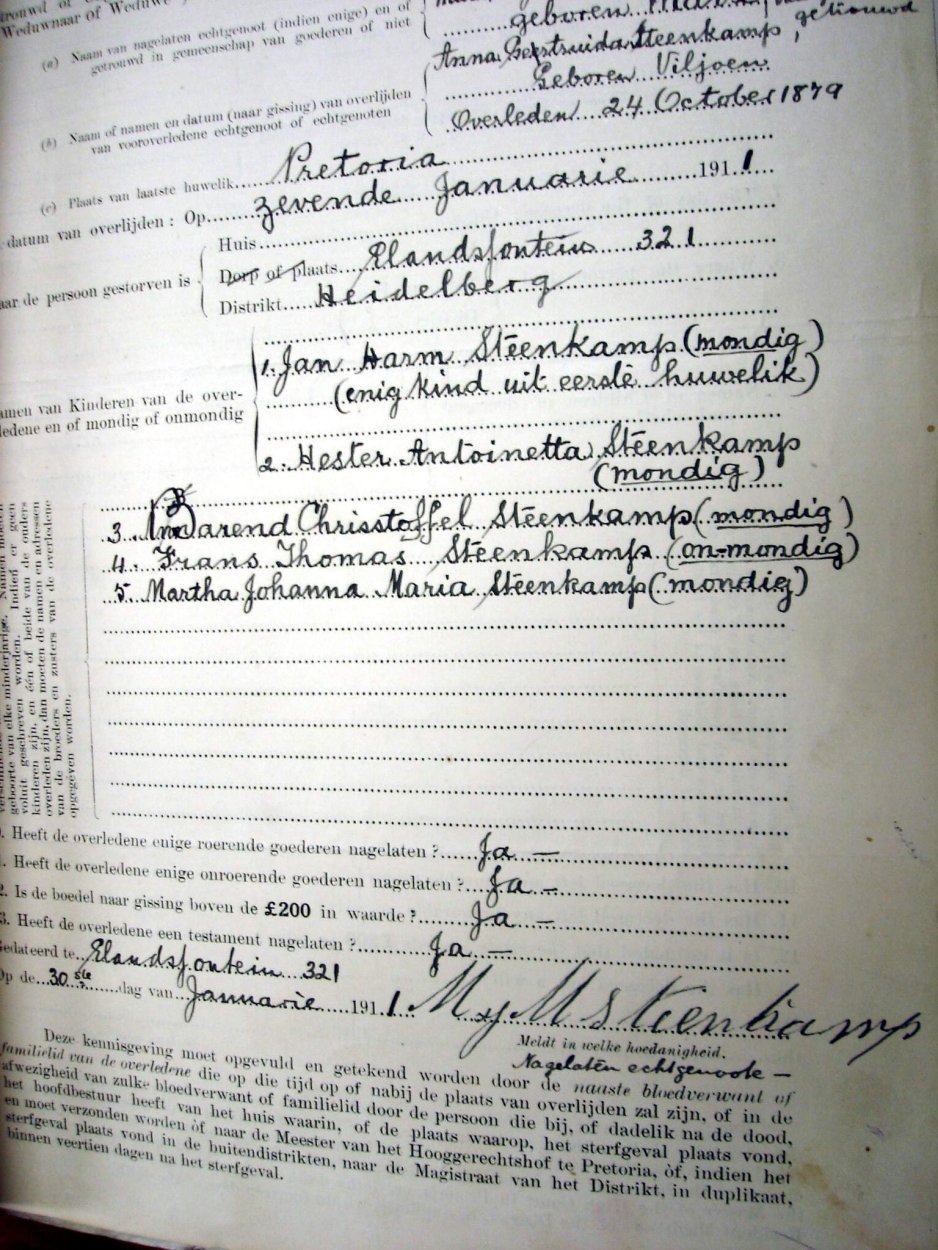 Weduwnaar of Weduwe
(a) Naam van nagelaten echtgenoot (indien enige) en of
getrouwd in gemeenschap van goederen of niet
geboren
getrouwd
Anna Geertruida Steenkamp,
Geboren Viljoen
(b) Naam of namen en datum (naar gissing) van overlijden
van vooroverledene echtgenoot of echtgenoten
Overleden 24 October 1879
(c) Plaats van laatste huwelik Pretoria
datum van overlijden : Op zevende Januarie 1911
Huis
aar de persoon gestorven is
Dorp of plaats Elandsfontein 321
Distrikt Heidelberg
1. Jan Harm Steenkamp (mondig)
(enig kind uit eerste huwelik)
amen van Kinderen van de over-
ledene en of mondig of onmondig
2. Hester Antoinetta Steenkamp
(mondig)
3. Barend Chrisstoffel Steenkamp (mondig)
4. Frans Thomas Steenkamp (on-mondig)
5. Martha Johanna Maria Steenkamp (mondig)
geboorte van elke minderjarige. Namen moeten
voluit geschreven worden. Indien er geen
kinderen zijn, en één of beide van de ouders
overleden zijn, dan moeten de namen en adressen
van de broeders en zusters van de overledene
opgegeven worden.
Heeft de overledene enige roerende goederen nagelaten ? Ja —
Heeft de overledene enige onroerende goederen nagelaten ? Ja —
2. Is de boedel naar gissing boven de £200 in waarde ? Ja —
3. Heeft de overledene een testament nagelaten ? Ja —
Gedateerd te Elandsfontein 321
Op de 30ste dag van Januarie 1911
M J M Steenkamp
Meldt in welke hoedanigheid.
Nagelaten echtgenoote —
Deze kennisgeving moet opgevuld en getekend worden door de naaste bloedverwant of
familielid van de overledene die op die tijd op of nabij de plaats van overlijden zal zijn, of in de
afwezigheid van zulke bloedverwant of familielid door de persoon die bij, of dadelik na de dood,
het hoofdbestuur heeft van het huis waarin, of de plaats waarop, het sterfgeval plaats vond,
en moet verzonden worden òf naar de Meester van het Hooggerechtshof te Pretoria, òf, indien het
sterfgeval plaats vond in de buitendistrikten, naar de Magistraat van het Distrikt, in duplikaat,
binnen veertien dagen na het sterfgeval.